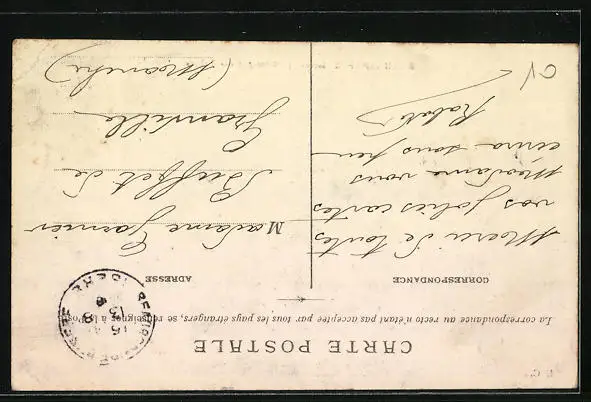 CARTE POSTALE
La correspondance au recto n'étant pas acceptée par tous les pays étrangers, se renseigner à la Poste
CORRESPONDANCE
Merci de toutes
vos jolies cartes
Madame vous
aurra sous peu
ADRESSE
Madame Garnier
Buffet de
Granville
(Manche)
ISERE